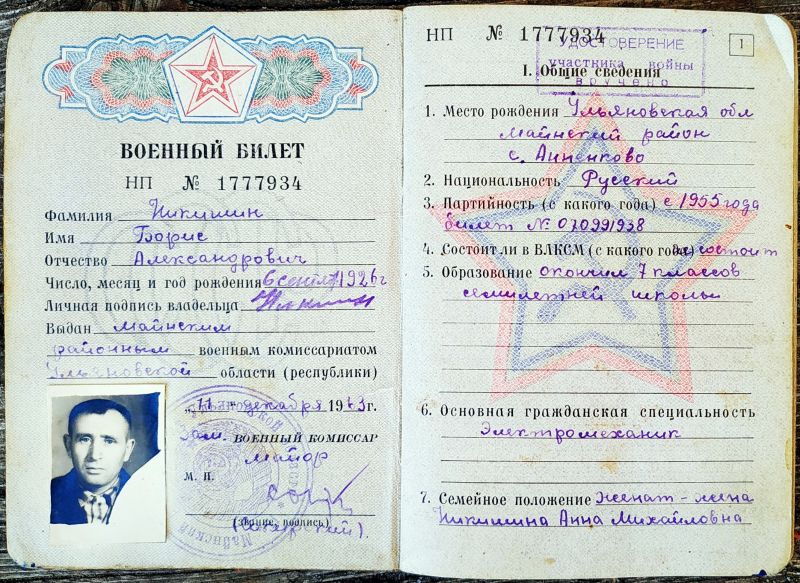 ВОЕННЫЙ БИЛЕТ
НП № 1777934
Фамилия Никишин
Имя Борис
Отчество Александрович
Число, месяц и год рождения 6 сент. 1926 г
Личная подпись владельца
Выдан Майнским
районным военным комиссариатом
Ульяновской области (республики)
„11" декабря 1973г.
Зам. ВОЕННЫЙ КОМИССАР
майор
М. П.
(звание, подпись)
Майнский
НП № 1777934
1
УДОСТОВЕРЕНИЕ
участника войны
вручено
I. Общие сведения
1. Место рождения Ульяновская обл
Майнский район
с. Анненково
2. Национальность Русский
3. Партийность (с какого года) с 1955 года
билет № 070991938
4. Состоит ли в ВЛКСМ (с какого года) не состоит
5. Образование окончил 7 классов
семилетней школы
6. Основная гражданская специальность
Электромеханик
7. Семейное положение Женат - жена
Никишина Анна Михайловна